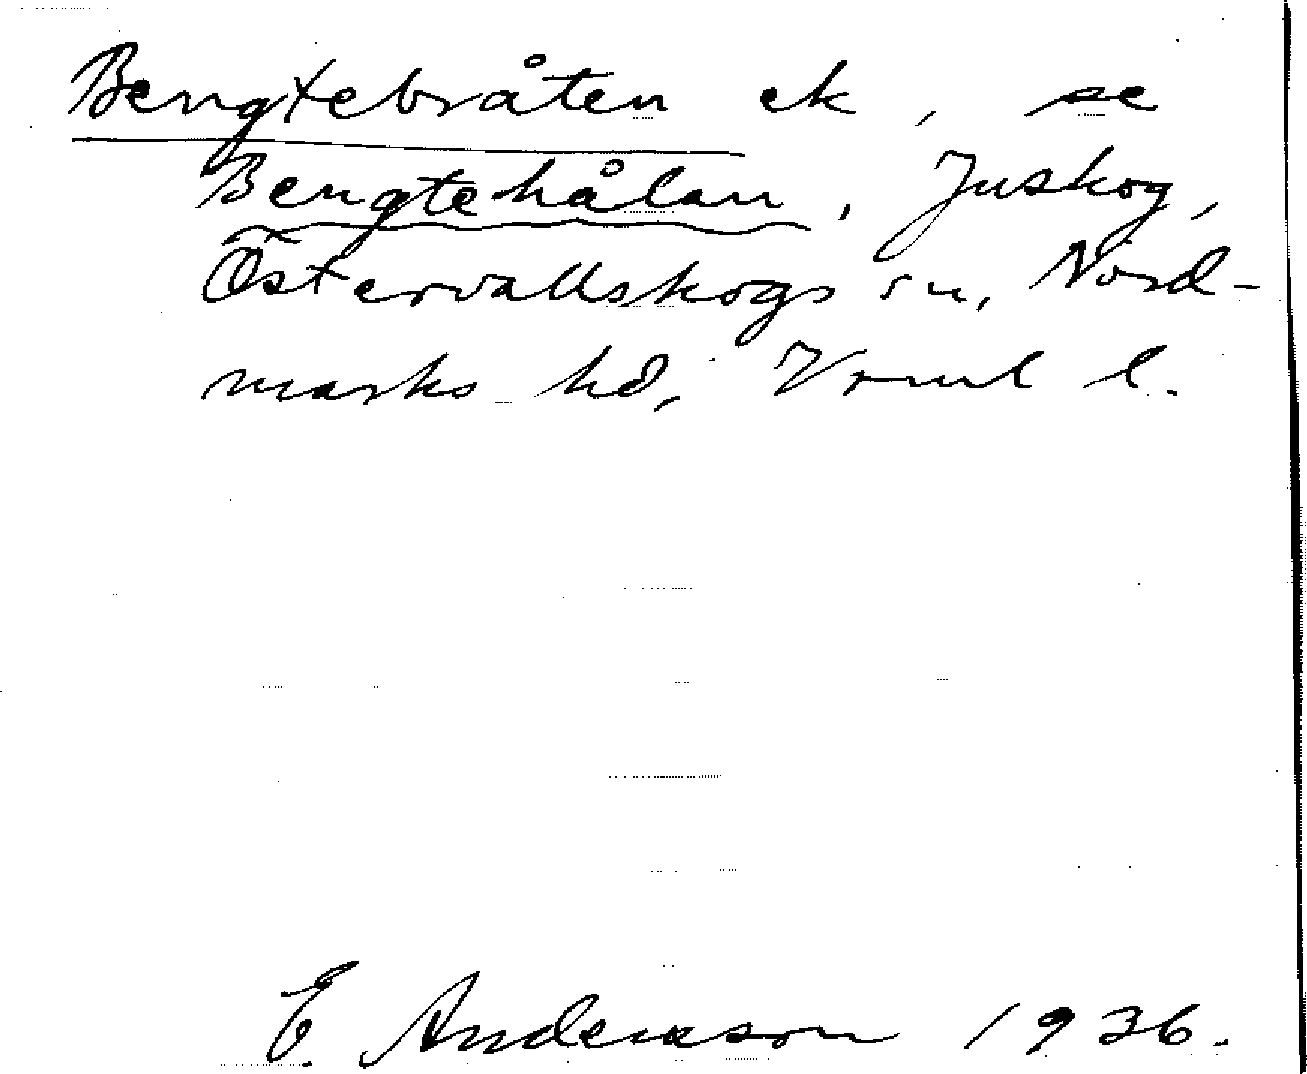 Bengtebråten ek, se
Bengtehålan, Juskog,
Östervallskogs sn, Nord-
marks hd, Vrml l.
E. Andersson 1936.